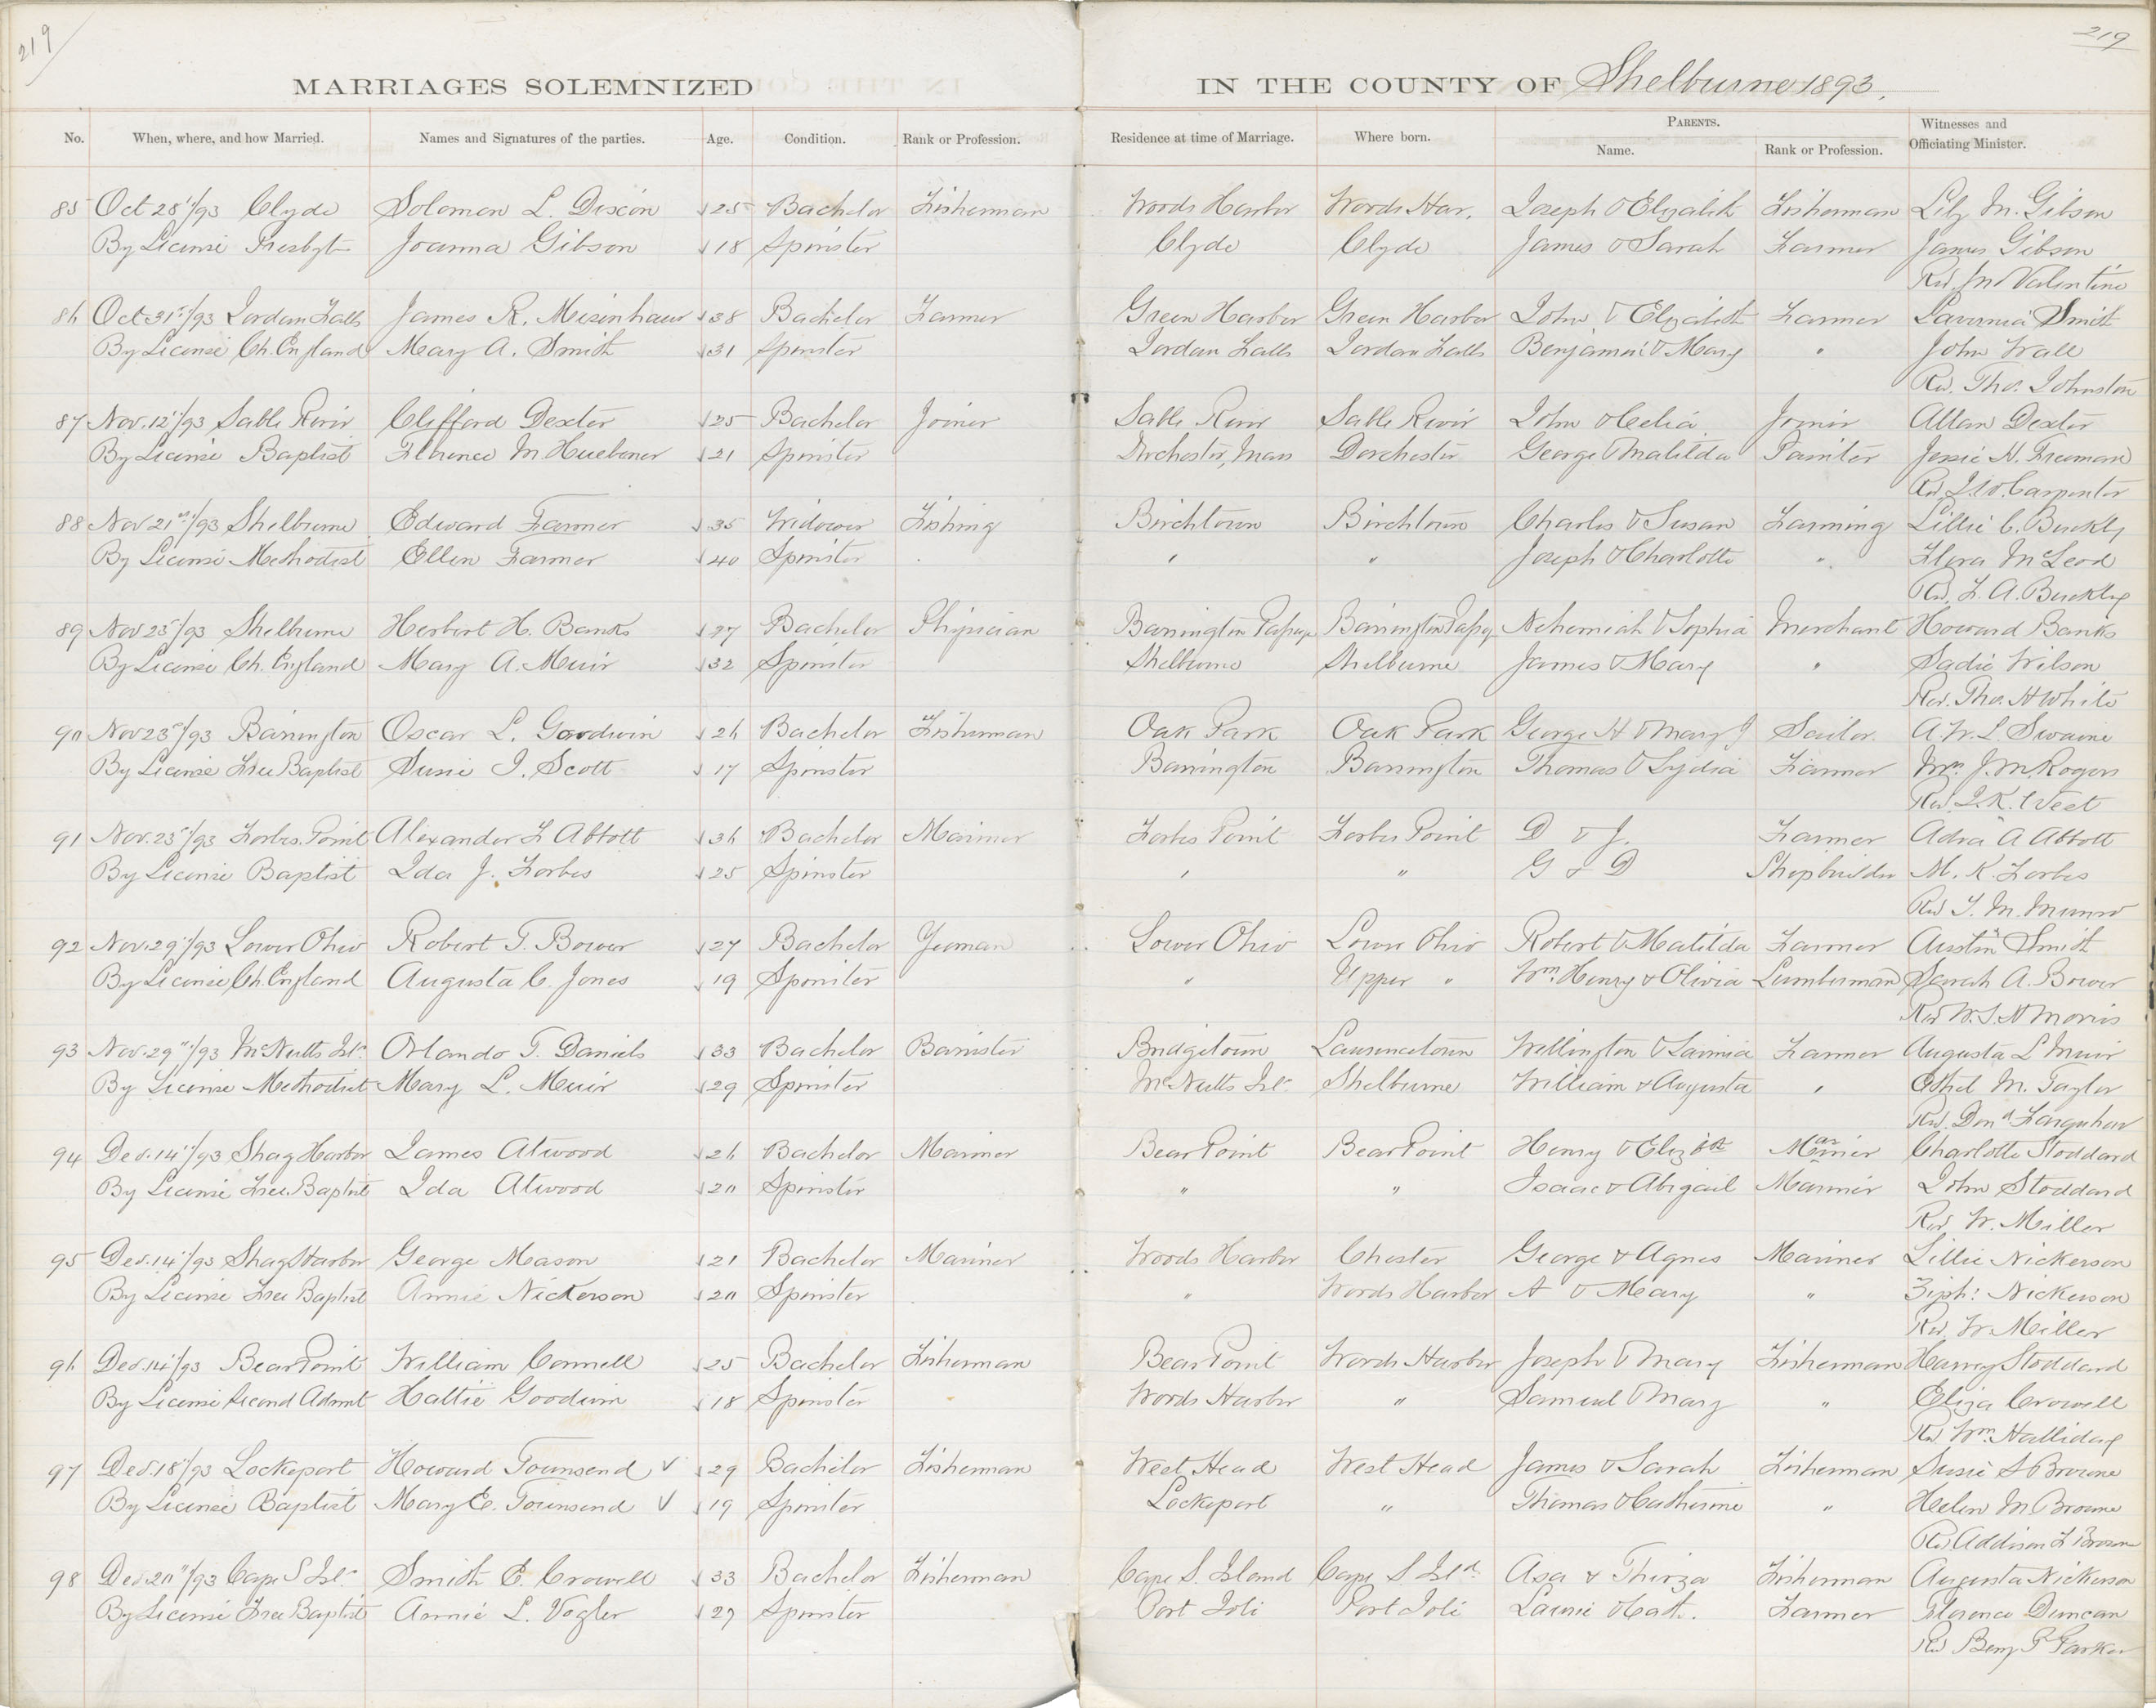 219
219
MARRIAGES SOLEMNIZED IN THE COUNTY OF Shelburne 1893.
No. When, where, and how Married. Names and Signatures of the parties. Age. Condition. Rank or Profession. Residence at time of Marriage. Where born. PARENTS. Name. Rank or Profession. Witnesses and Officiating Minister.
85 Oct 28/93 Clyde Solomon L. Dixon 25 Bachelor Fisherman Woods Harbor Woods Har. Joseph & Elizabeth Fisherman Lily M. Gibson
By License Presbytn Joanna Gibson 18 Spinster Clyde Clyde James & Sarah Farmer James Gibson
Rev. Valentine
86 Oct 31st/93 Jordan Falls James R. Misenhaur 38 Bachelor Farmer Green Harbor Green Harbor John & Elizabeth Farmer Lavernia Smith
By License Ch. England Mary A. Smith 31 Spinster Jordan Falls Jordan Falls Benjamin & Mary " John Wall
Rev. Tho. Johnston
87 Nov. 12/93 Sable River Clifford Dexter 25 Bachelor Joiner Sable River Sable River John & Celia Joiner Allan Dexter
By License Baptist Florence M Huebener 21 Spinster Dorchester, Mass Dorchester George & Matilda Painter Jessie H. Freeman
Rev. Carpenter
88 Nov 21st/93 Shelburne Edward Farmer 35 Widower Fishing Birchtown Birchtown Charles & Susan Farming Lillie C. Buckley
By License Methodist Ellen Farmer 40 Spinster " " Joseph & Charlotte " Flora McLeod
Rev. F. A. Buckley
89 Nov 25/93 Shelburne Herbert H. Banks 27 Bachelor Physician Barrington Passage Barrington Passage Nehemiah & Sophia Merchant Howard Banks
By License Ch. England Mary A. Muir 32 Spinster Shelburne Shelburne James & Mary " Sadie Wilson
Rev. Tho. H White
90 Nov 25/93 Barrington Oscar L. Goodwin 26 Bachelor Fisherman Oak Park Oak Park George H & Mary J Sailor A. W. L. Swaine
By License Free Baptist Susie J. Scott 17 Spinster Barrington Barrington Thomas & Lydia Farmer Mrs. J. M. Rogers
Rev. J. K. West
91 Nov. 25/93 Forbes Point Alexander F Abbott 36 Bachelor Mariner Forbes Point Forbes Point D & J. Farmer Adra A Abbott
By License Baptist Ida J. Forbes 25 Spinster " " G & D Shipbuilder M. K. Forbes
Rev T. M. Munro
92 Nov. 29/93 Lower Ohio Robert T. Bower 27 Bachelor Yeoman Lower Ohio Lower Ohio Robert & Matilda Farmer Austin Smith
By License Ch. England Augusta C. Jones 19 Spinster " Upper " Wm. Henry & Olivia Lumberman Sarah A. Bower
Rev W. S. H Morris
93 Nov. 29"/93 McNutts Isl. Orlando T. Daniels 33 Bachelor Barrister Bridgetown Lawrencetown Wellington & Lavinia Farmer Augusta L Muir
By License Methodist Mary L. Muir 29 Spinster McNutts Isl. Shelburne William & Augusta " Ethel M. Taylor
Rev. Dond Farquhar
94 Dec. 14/93 Shag Harbor James Atwood 26 Bachelor Mariner Bear Point Bear Point Henry & Elizbth Mariner Charlotte Stoddard
By License Free Baptist Ida Atwood 20 Spinster " " Isaac & Abigail Mariner John Stoddard
Rev. W. Miller
95 Dec. 14/93 Shag Harbor George Mason 21 Bachelor Mariner Woods Harbor Chester George & Agnes Mariner Lillie Nickerson
By License Free Baptist Annie Nickerson 20 Spinster " Woods Harbor A & Mary " Ziph: Nickerson
Rev. W. Miller
96 Dec. 14/93 Bear Point William Connell 25 Bachelor Fisherman Bear Point Woods Harbor Joseph & Mary Fisherman Harvey Stoddard
By License Second Advent Hattie Goodwin 18 Spinster Woods Harbor " Samuel & Mary " Eliza Crowell
Rev. Wm. Halliday
97 Dec. 18/93 Lockeport Howard Townsend 29 Bachelor Fisherman West Head West Head James & Sarah Fisherman Susie S Browne
By License Baptist Mary E. Townsend 19 Spinster Lockeport " Thomas & Catherine " Helen M Browne
Rev Addison F Browne
98 Dec. 20"/93 Cape S Isl. Smith E. Crowell 33 Bachelor Fisherman Cape S. Island Cape S. Isld. Asa & Thirza Fisherman Augusta Nickerson
By License Free Baptist Annie L. Vogler 27 Spinster Port Joli Port Joli & Cath. Farmer Florence Duncan
Rev Benj P Parker